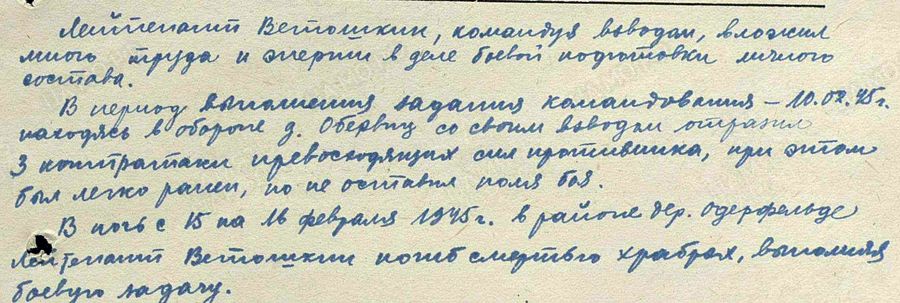 Лейтенант Ветошкин, командуя взводом, вложил
много труда и энергии в деле боевой подготовки личного
состава.
В период выполнения задания командования – 10.02.45г.
находясь в обороне д. Обервиц со своим взводом отразил
3 контратаки превосходящих сил противника, при этом
был легко ранен, но не оставил поля боя.
В ночь с 15 на 16 февраля 1945г. в районе дер. Одерфельде
Лейтенант Ветошкин погиб смертью храбрых, выполняя
боевую задачу.